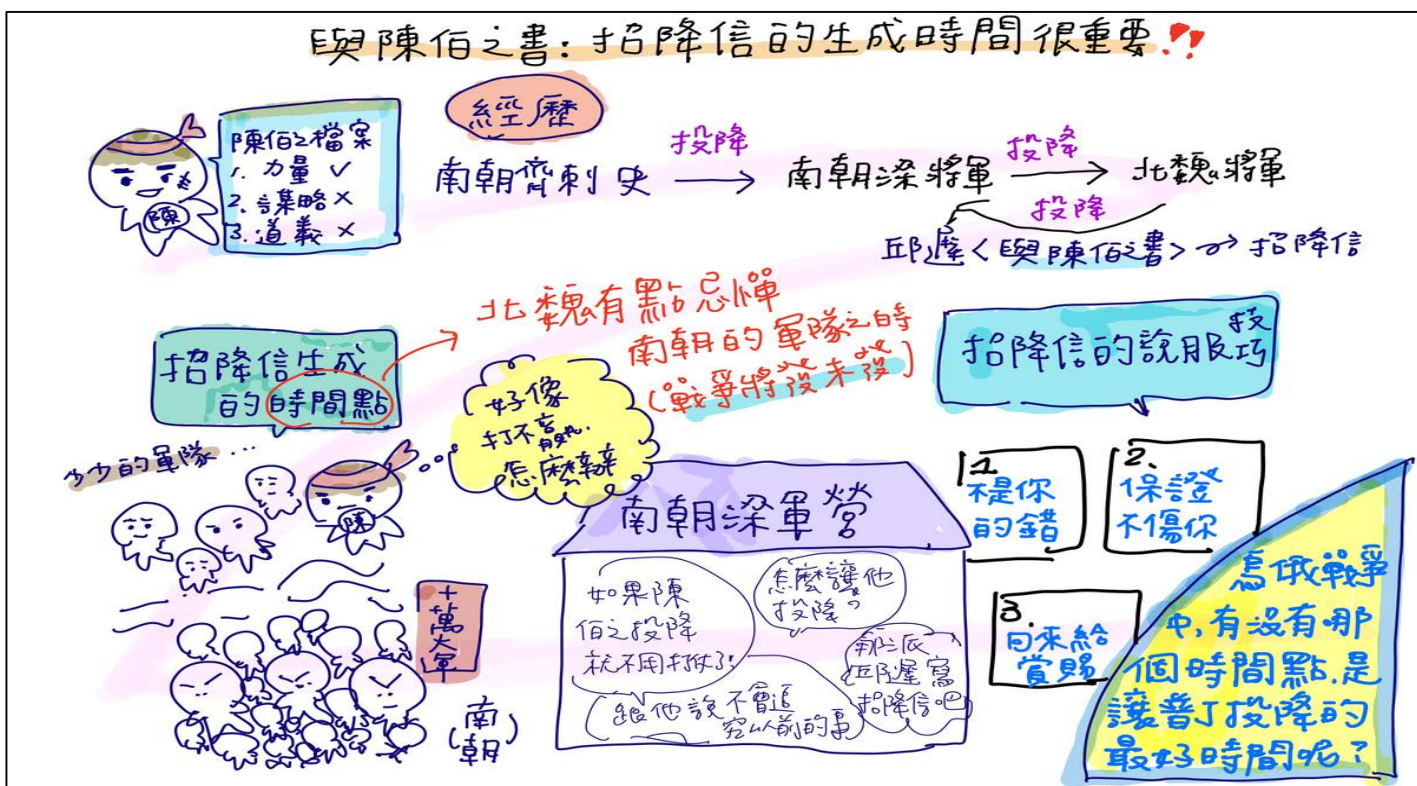 與陳伯之書:招降信的生成時間很重要!!
陳伯之檔案
1. 力量 ✓
2. 謀略 ×
3. 道義 ×
陳
經歷
南朝齊刺史
投降
南朝梁將軍
投降
北魏將軍
投降
邱遲<與陳伯之書>
招降信
招降信生成
的時間點
北魏有點忌憚
南朝的軍隊之時
(戰爭將發未發)
招降信的說服技巧
少少的軍隊...
陳
好像
打不贏.
怎麼辦
十萬大軍
(南朝)
南朝梁軍營
如果陳
伯之投降
就不用打仗了!
怎麼讓他
投降?
跟他說不會追
究以前的事
那派
邱遲寫
招降信吧
1.
不是你
的錯
2.
保證
不傷你
3.
回來給
賞賜
烏俄戰爭
中,有沒有哪
個時間點.是
讓普丁投降的
最好時間呢?